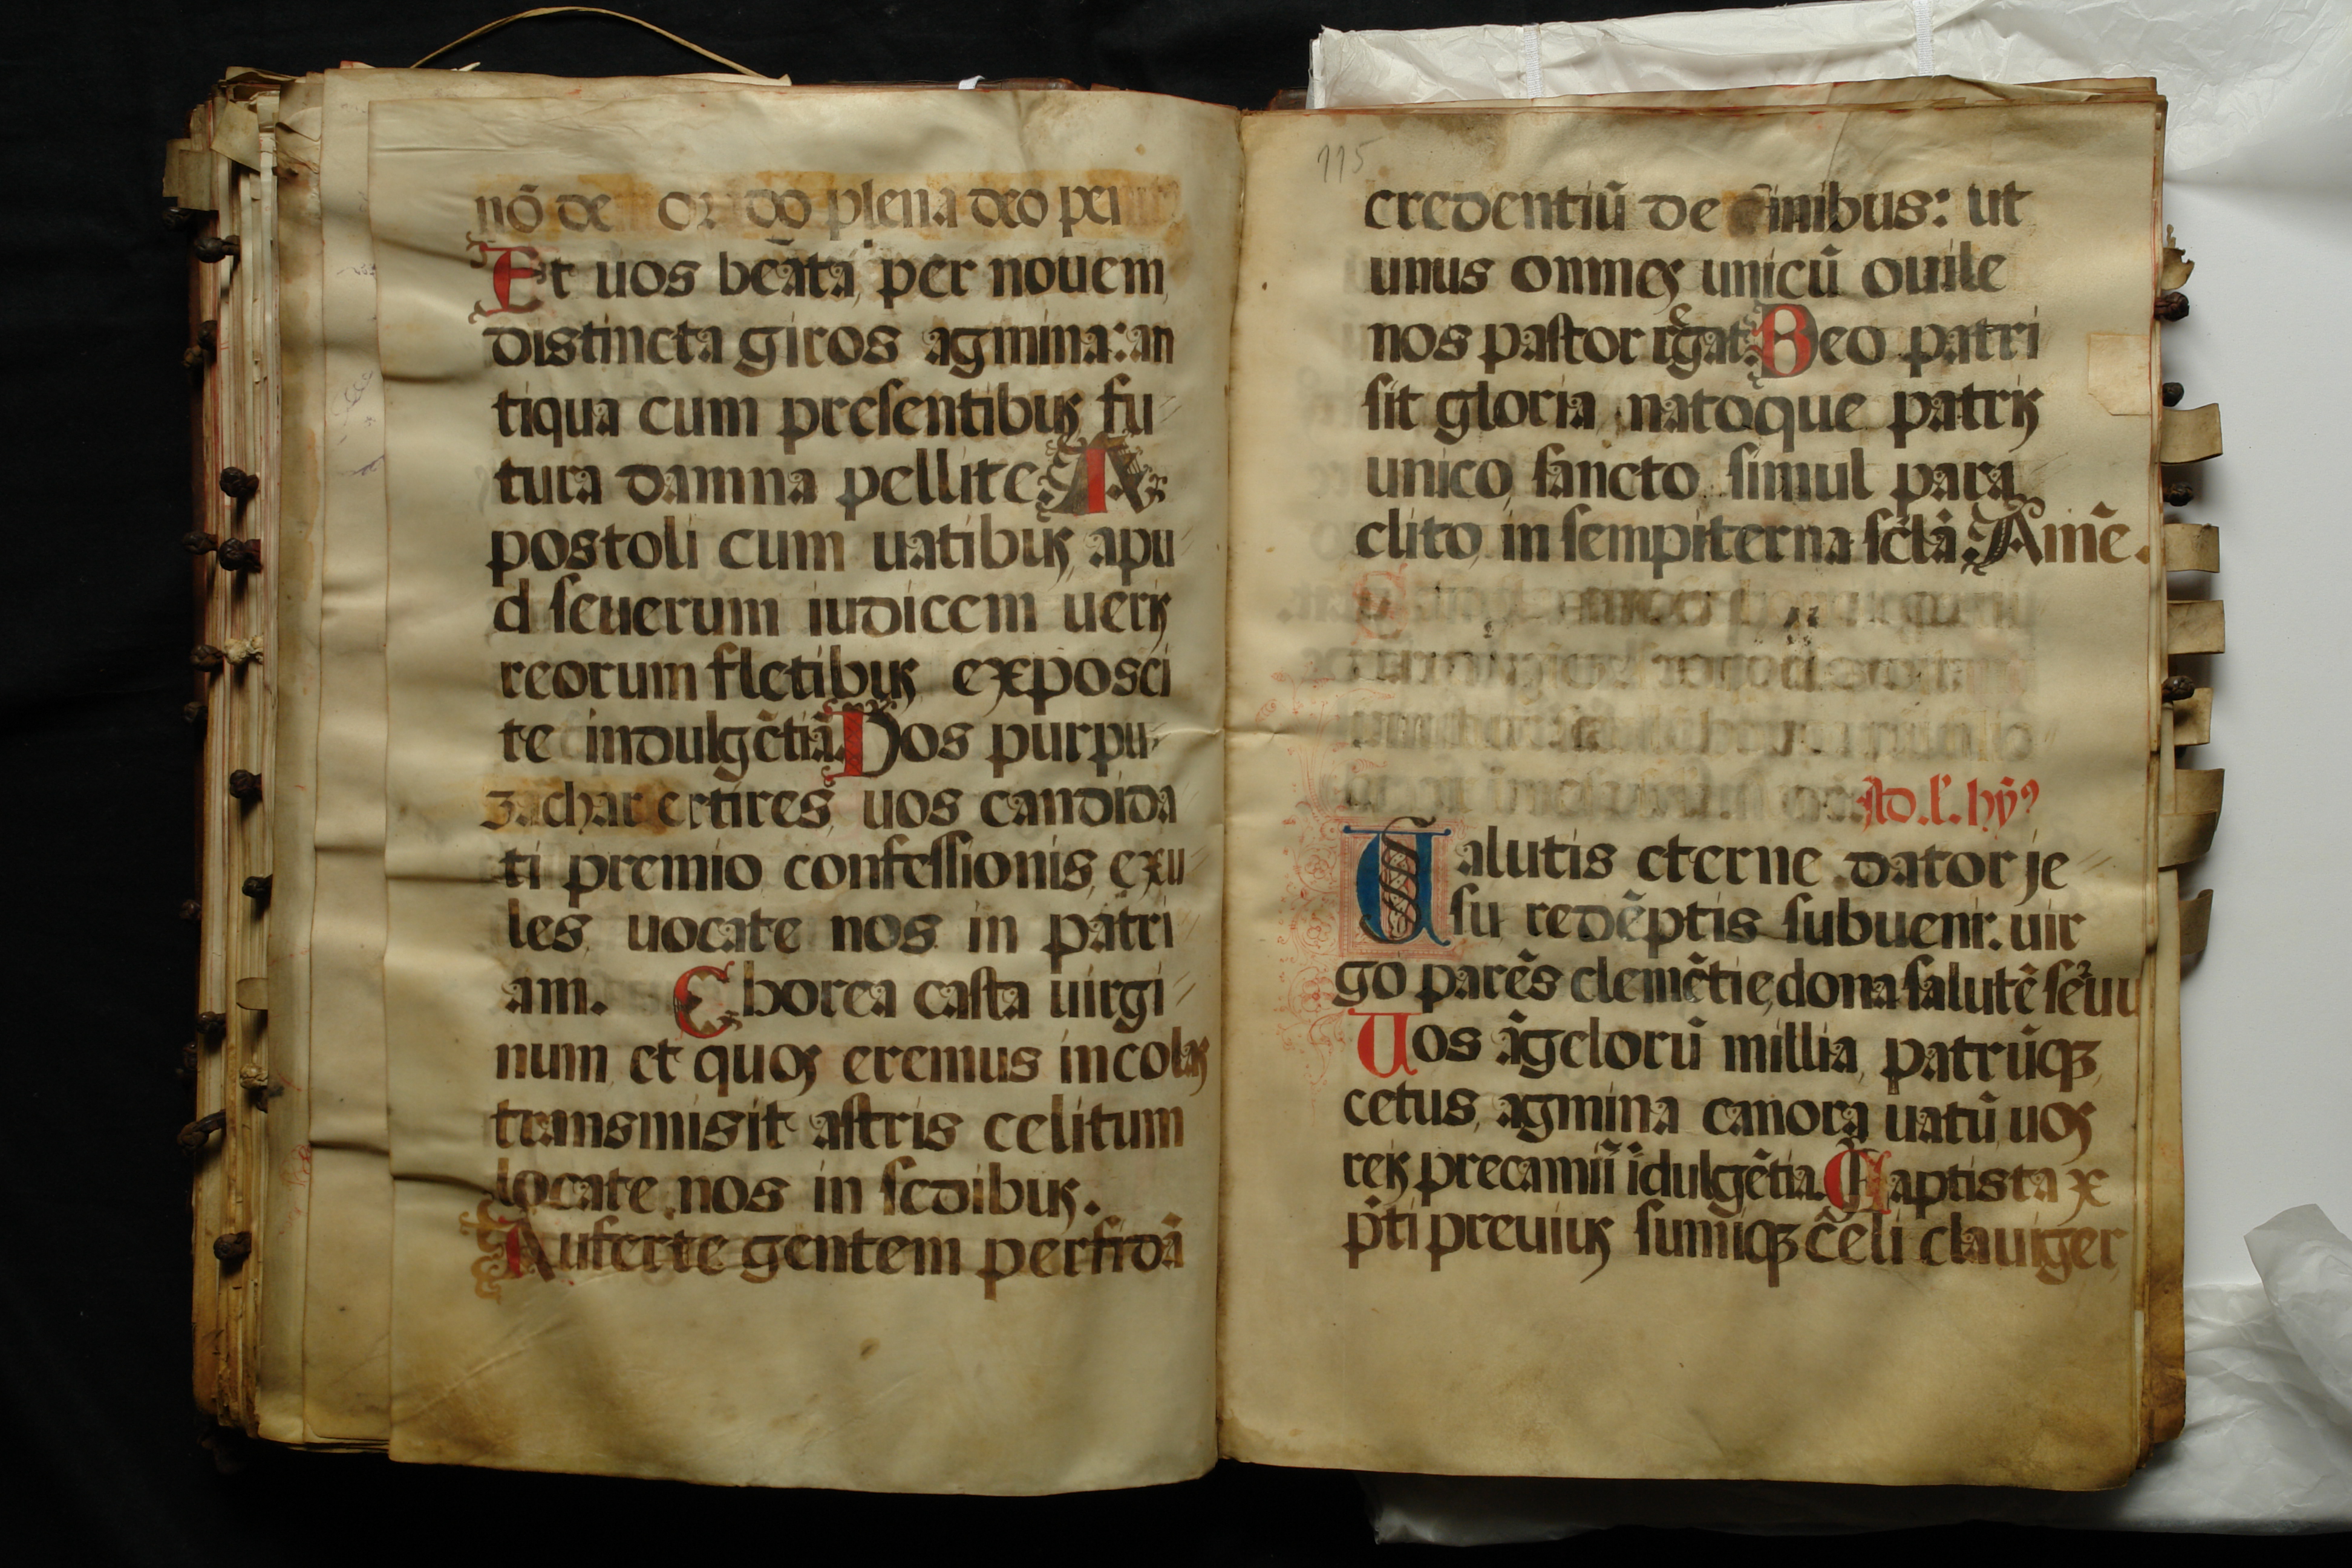 nō de or do plena deo pei
Et uos beāta, per nouem
distincta giros agmina: an
tiqua cum presentibus fu
tura damna pellite. A
postoli cum uatibus, apu
d seuerum iudicem ueris
reorum fletibus exposci
te indulgētiā. Vos purpu
ertires, uos candida
ti premio confessionis, exu
les uocate nos in patri
am. Eborea casta uirgi
num et quos eremus incolas
transmisit astris celitum
locate nos in sedibus.
Auferte gentem perfidā
115
credentiū de finibus: ut
unus omnes unicū ouile
nos pastor regat. Deo patri
sit gloria, natoque patris
unico, sancto simul para
clito, in sempiterna scla. Amē.
Ad. l'. hȳ9
Salutis eterne dator je
su redēptis subueni. uir
go parēs clemētie, dona salutē seruu
Vos āgelorū millia, patrūqȝ
cetus, agmina canora uatū, uos
reis precamiī īdulgētia. Baptista x
p̄ti preuius sumiqȝ c̄eli clauiger